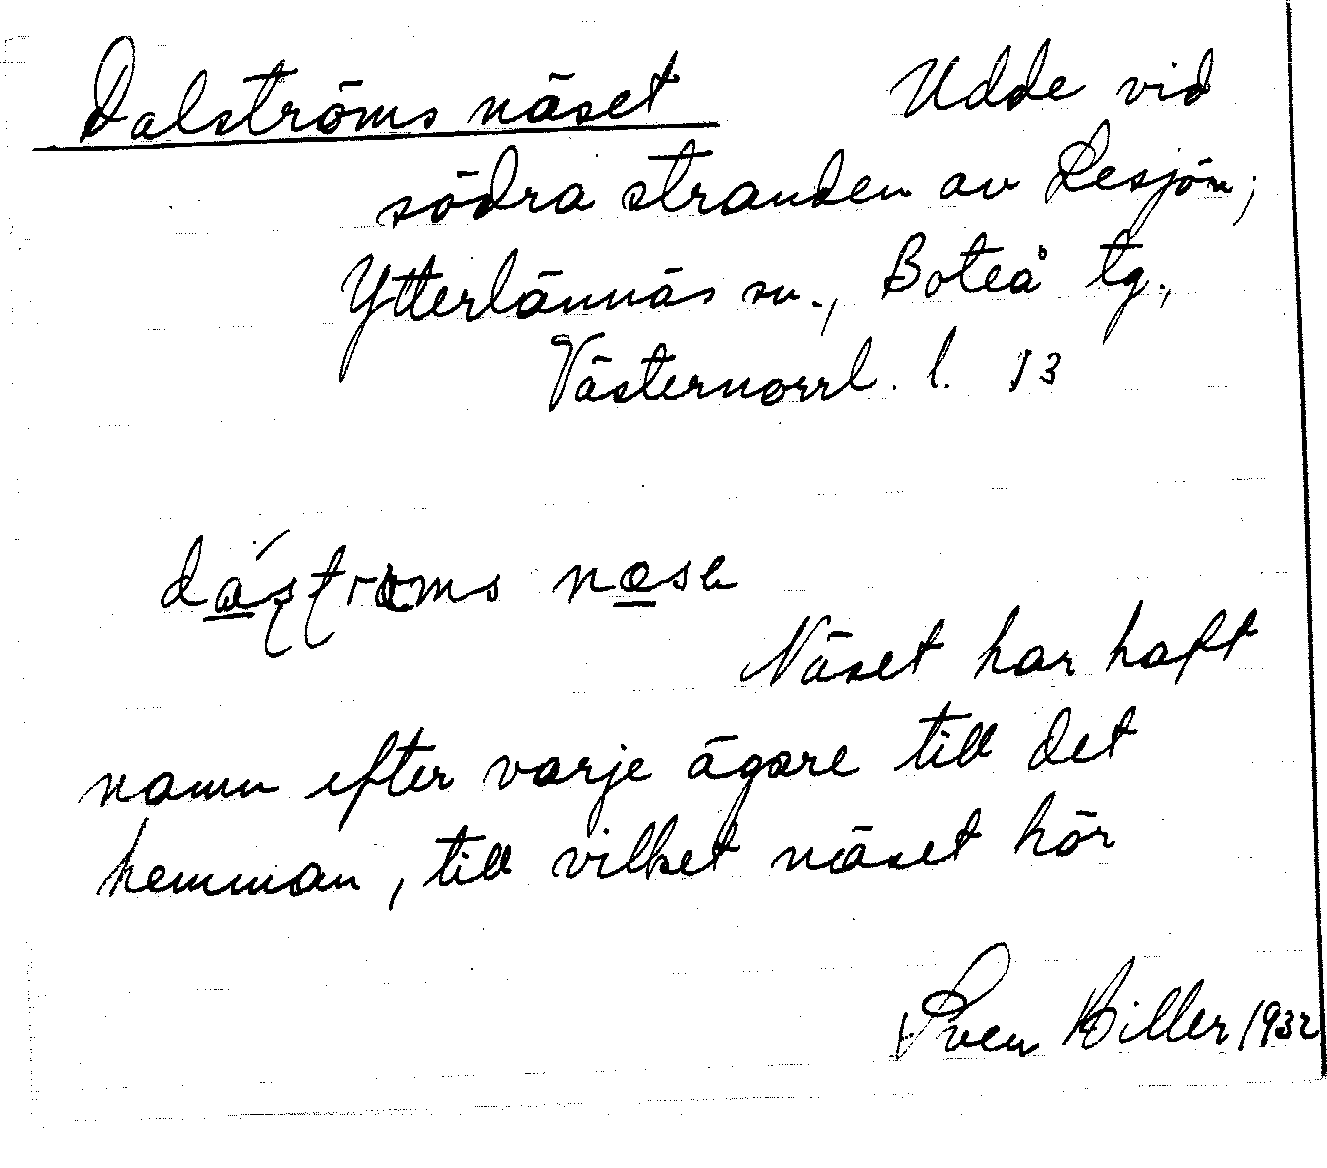 Dalströms näset Udde vid
södra stranden av Lesjön;
Ytterlännäs sn., Boteå tg.,
Västernorrl. l. 13
Näset har haft
namn efter varje ägare till det
hemman, till vilket näset hör
Sven Hiller 1932